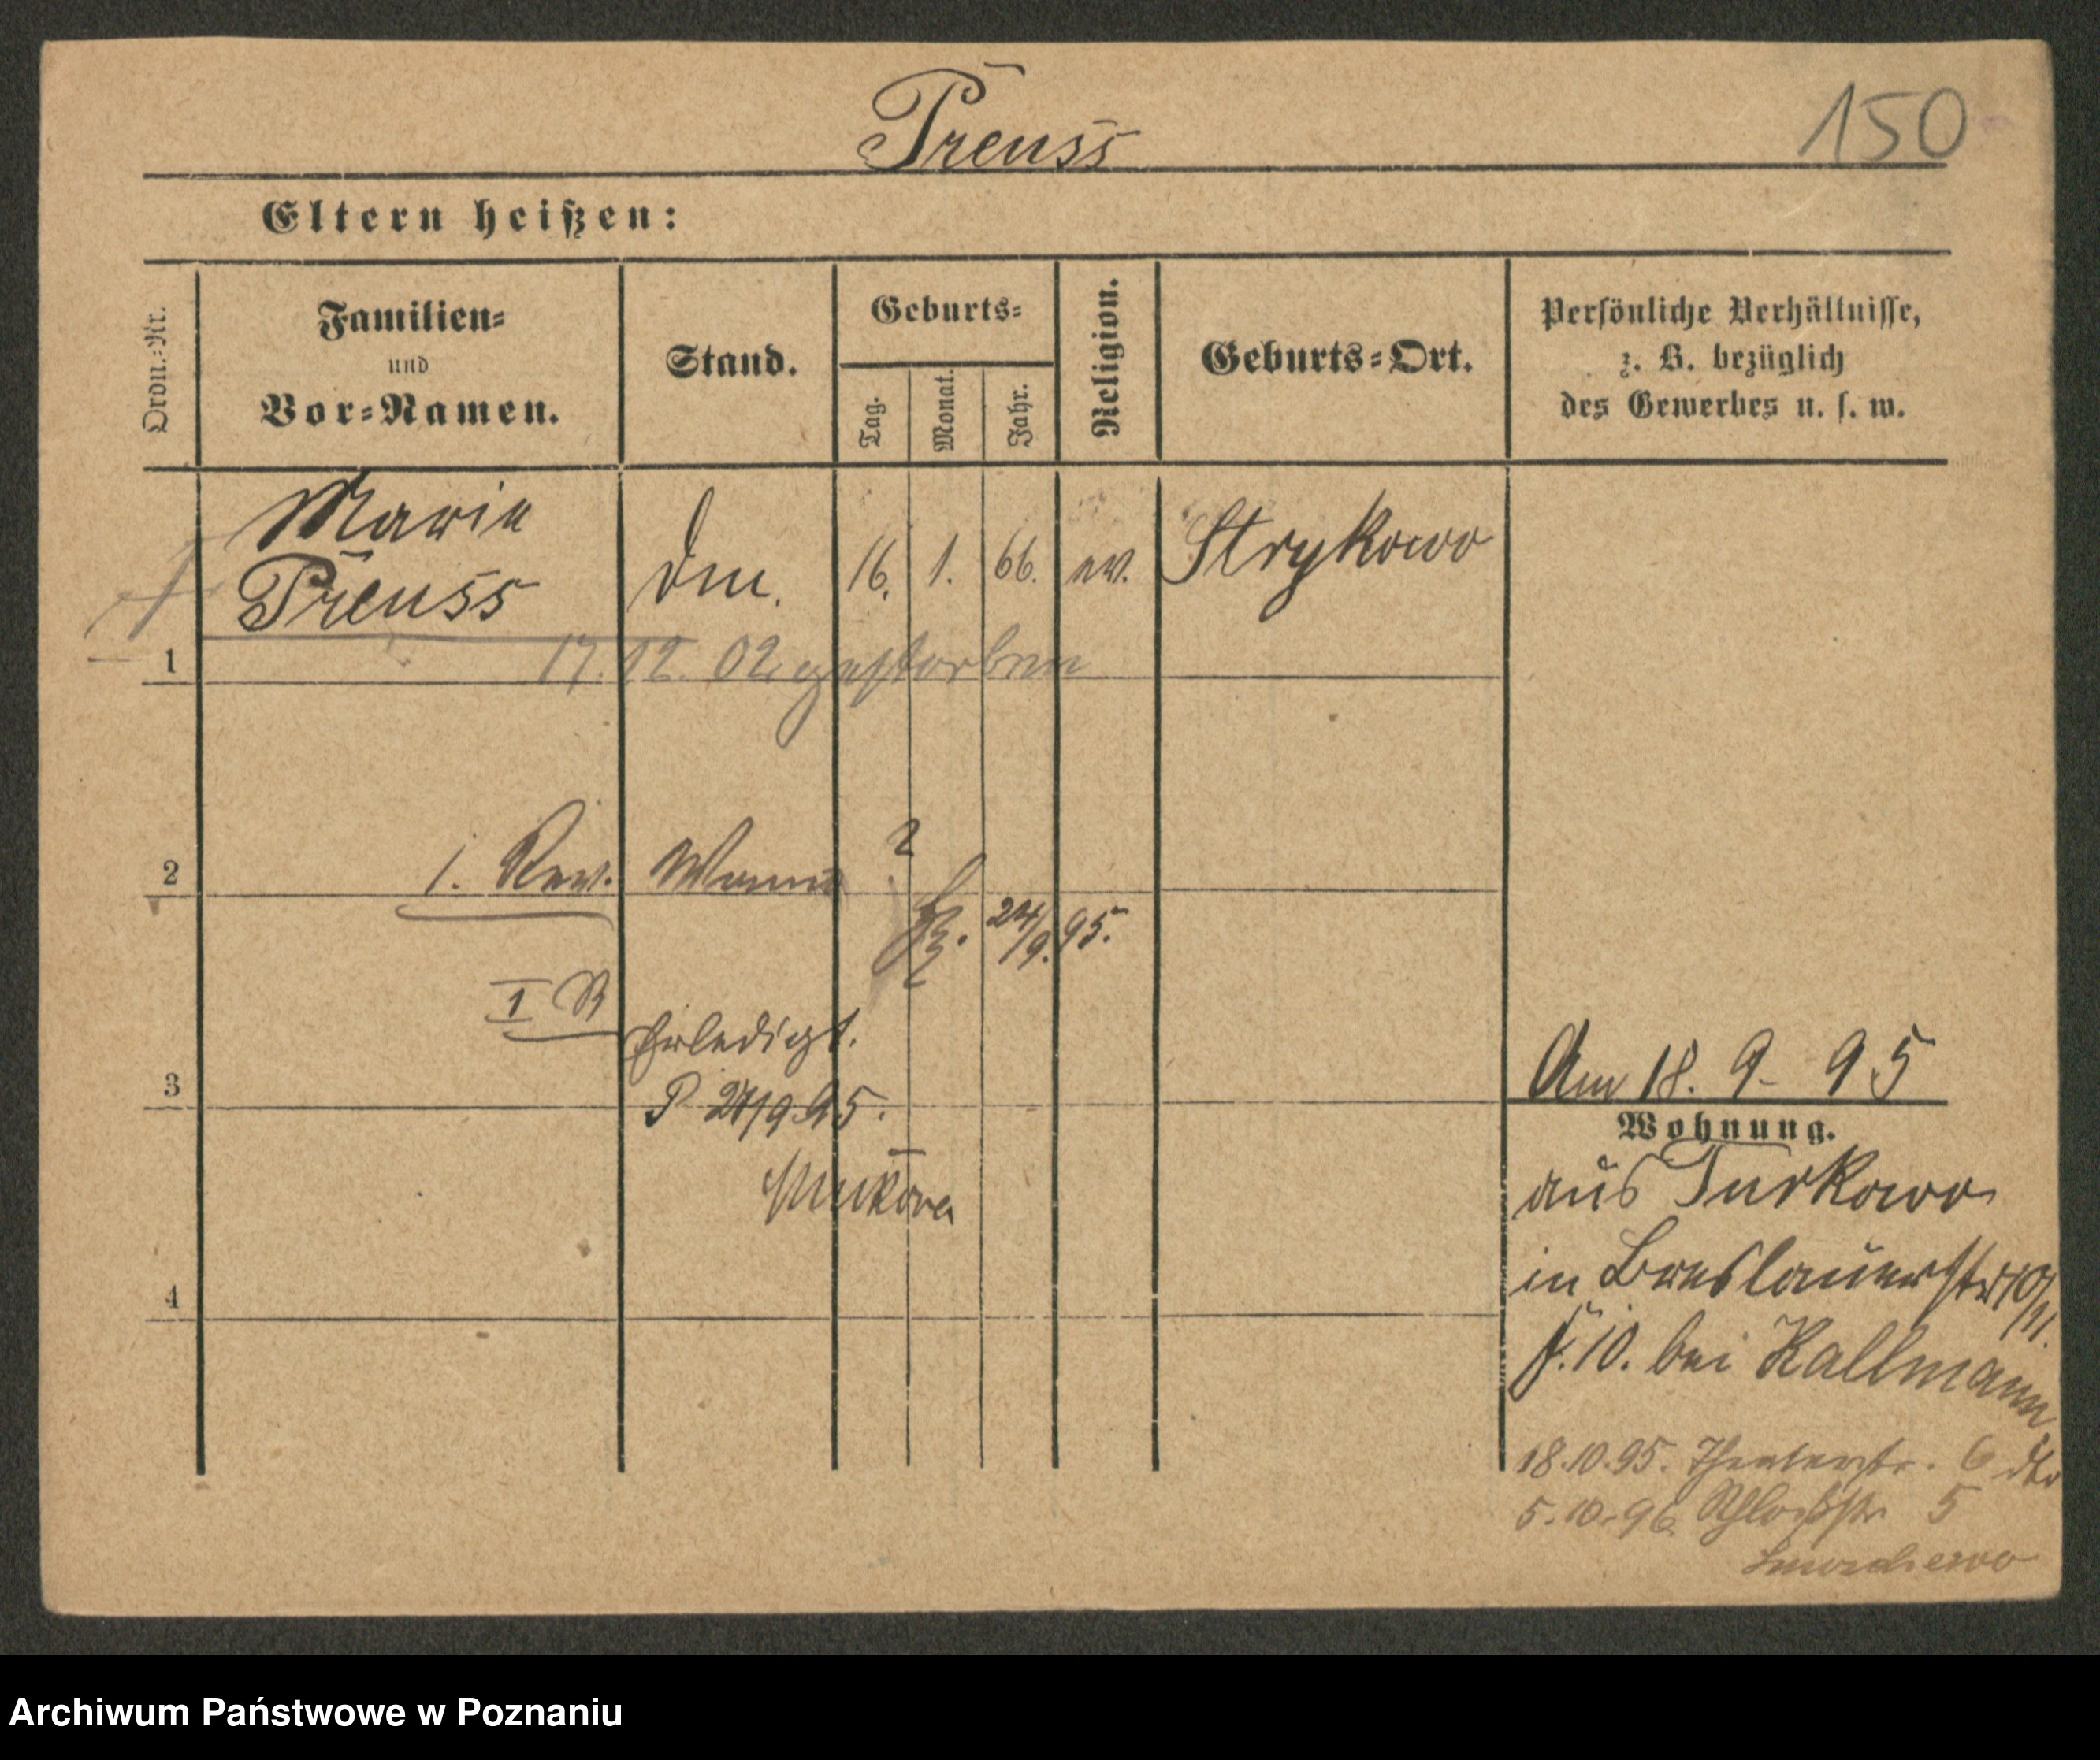 Preuss
150
Eltern heißen:
Ordn.-Nr.
Familien-
und
Vor-Namen.
Stand.
Geburts-
Tag.
Monat.
Jahr.
Religion.
Geburts-Ort.
Persönliche Verhältnisse,
z. B. bezüglich
des Gewerbes u. s. w.
Marie
Preuss
16. 1. 66. ev. Strykowo
1
17. 12. 02 gestorben
2
1. Rev. Wann ?
24/9. 95.
I R
Erledigt.
3
P 27/9 95.
Am 18. 9. 95
Wohnung.
aus Turkowo
in Breslauerstr 10/11.
4
10. bei Kallmann
18.10.95. Theaterstr. 6
5.10.96 Schloßstr 5
Archiwum Państwowe w Poznaniu